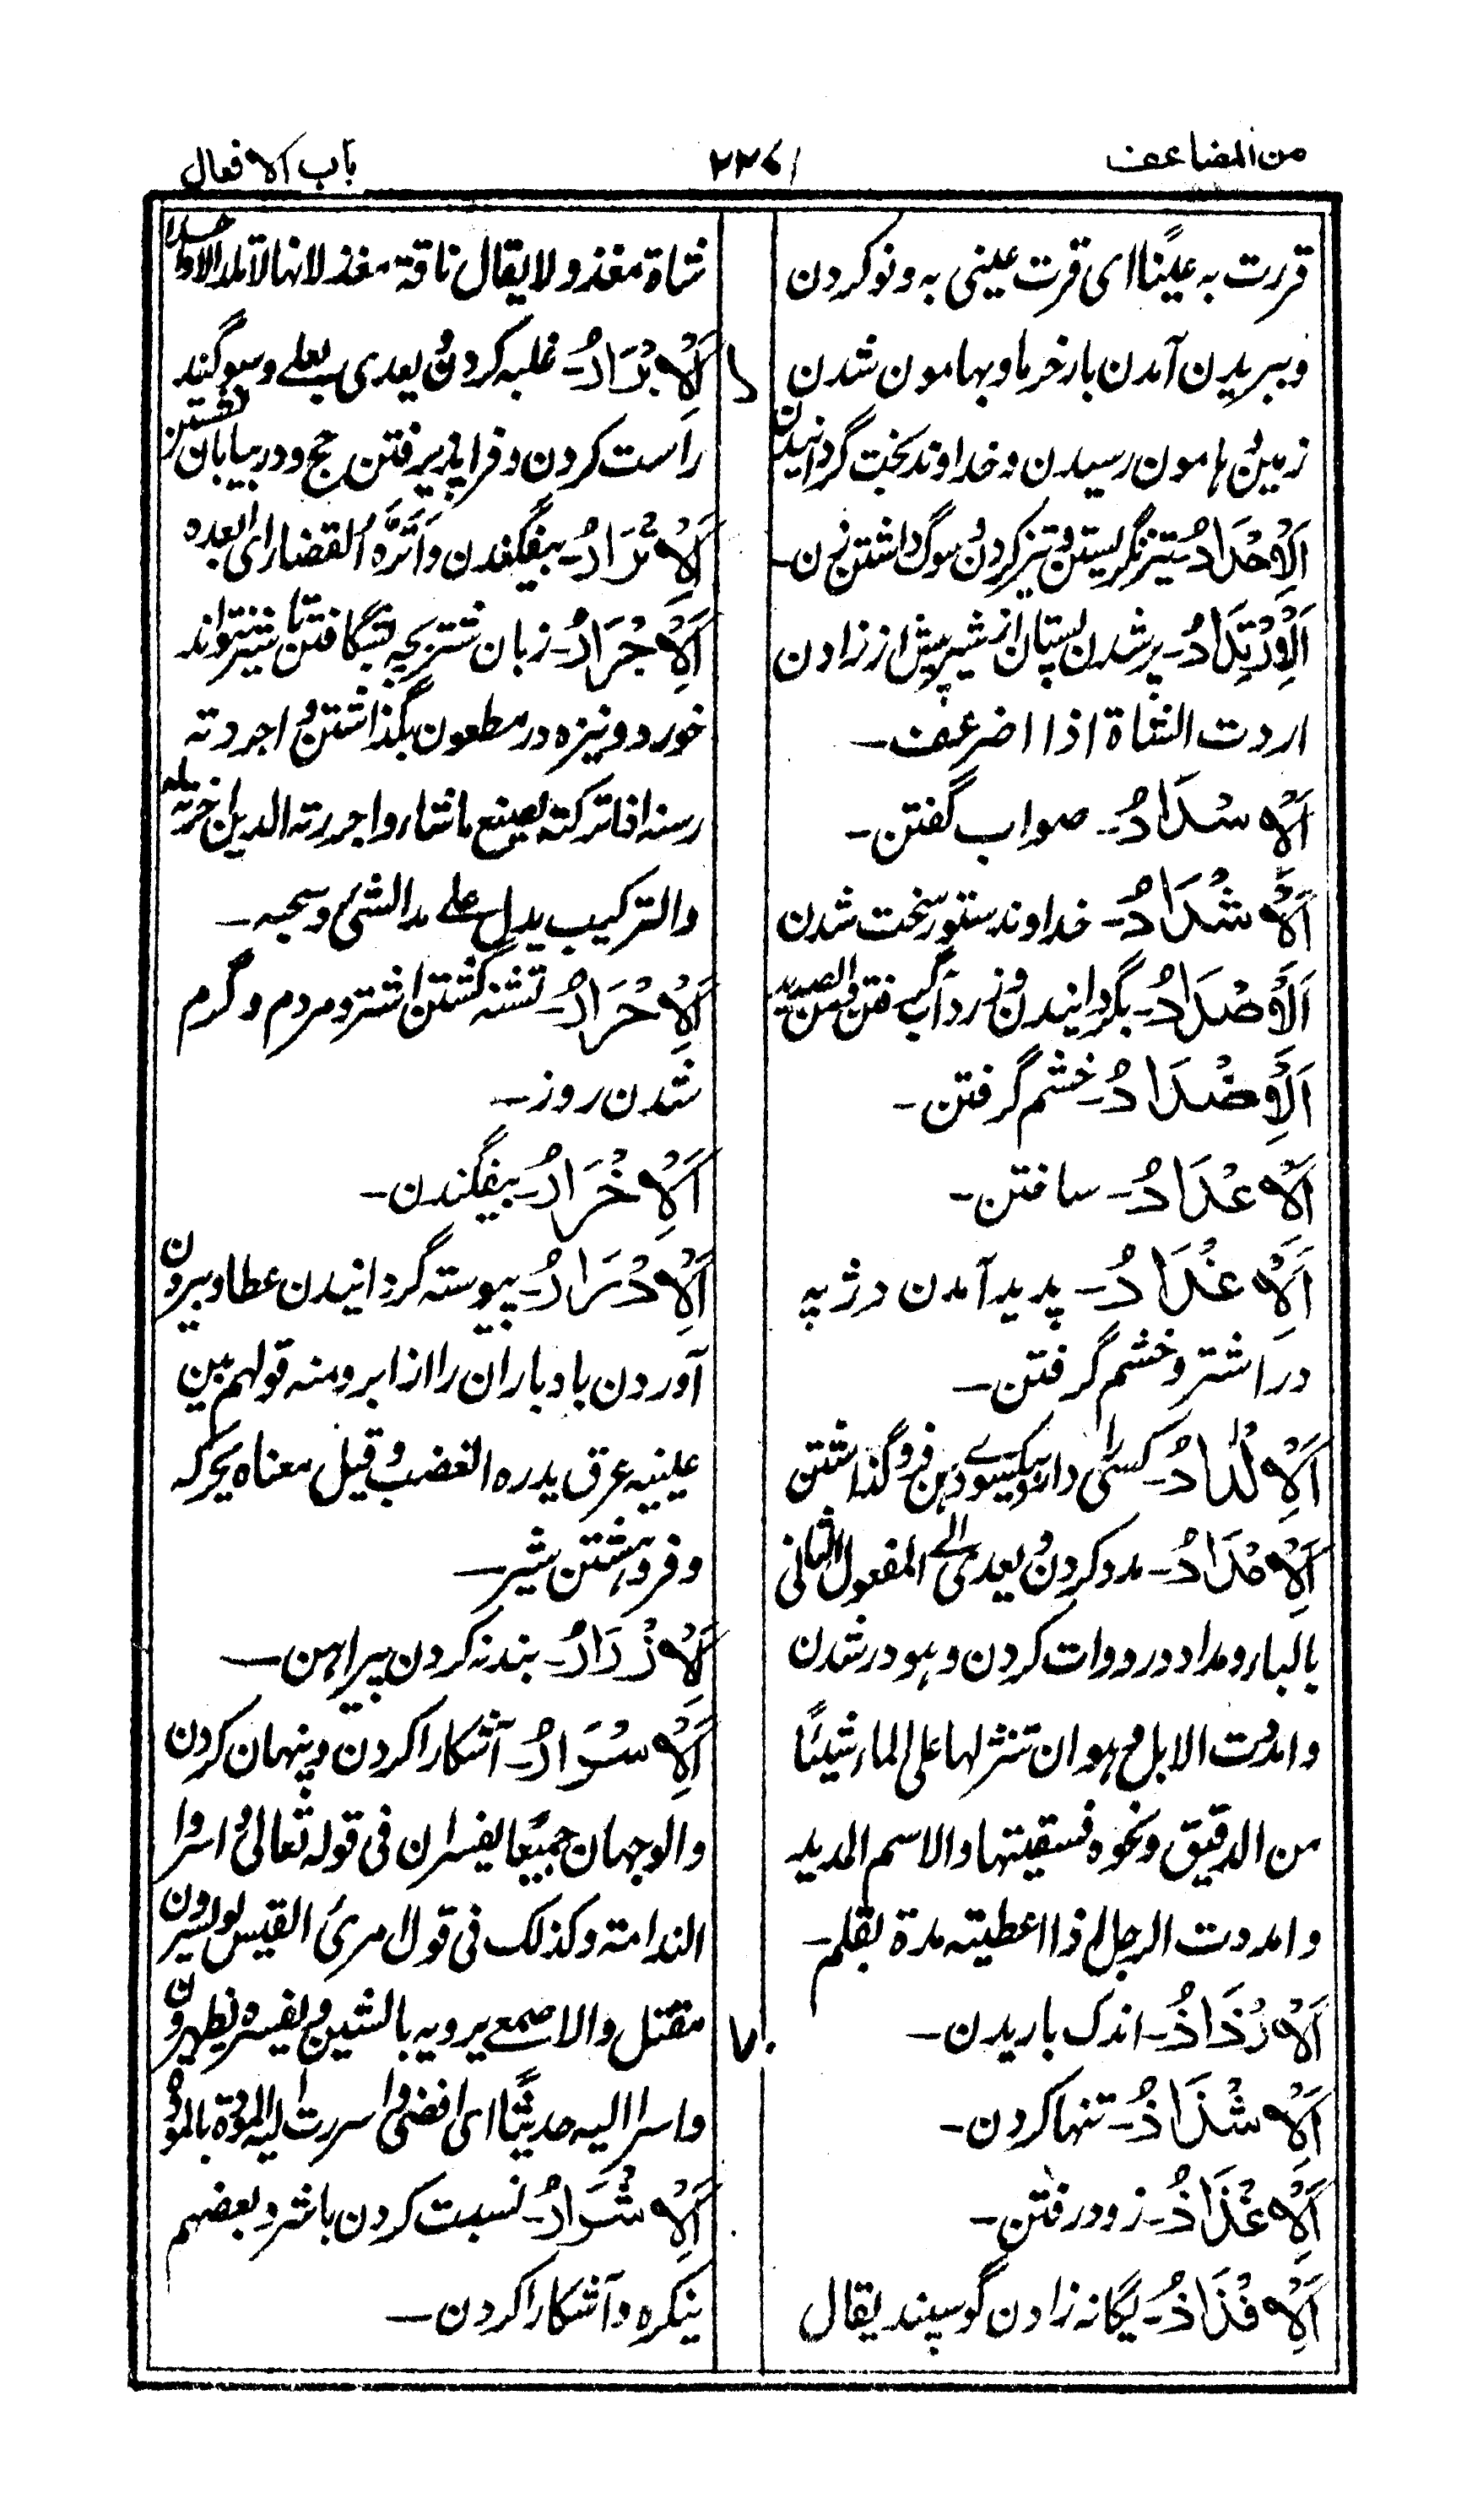 من المضاعف
باب الافعال
قررت به عينًا ای قرت عینی به و نو کردن
و ببریدن آمدن بار خرما و بهامون شدن
زمین و بهامون رسیدن و خداوند بخت گردانیدن
اَلْاِحْدَادُ۔ تیز نگریستن و تیز کردن و سوگ داشتن زن۔
اَلْاِرْدَادُ۔ پر شدن پستان از شیر پیش از زادن
اردت الشاة اذا اضرعت۔
اَلْاِسْدَادُ۔ صواب گفتن۔
اَلْاِشْدَادُ۔ خداوند ستور سخت شدن
اَلْاِصْدَادُ۔ بگردانیدن و زرد آب گرفتن من الصدید
اَلْاِضْدَادُ۔ خشم گرفتن۔
اَلْاِعْدَادُ۔ ساختن۔
اَلْاِغْدَادُ۔ پدید آمدن دژپه
در اشتر و خشم گرفتن۔
اَلْاِلْدَادُ۔ کسی را دارو بیکسوے دهن فروگذاشتن
اَلْاِمْدَادُ۔ مدد کردن و یعدی الی المفعول الثانی
بالباء و مداد در دوات کردن و
وامددت الابل و هو ان تنثر لها علی الماء شیئًا
من الدقیق ونحوه فسقیتها والاسم المدید
وامددت الرجل اذا اعطیته مدة بقلم۔
اَلْاِرْذَاذُ۔ اندک باریدن۔
اَلْاِشْذَاذُ۔ تنها کردن۔
اَلْاِغْذَاذُ۔ زود رفتن۔
اَلْاِفْذَاذُ۔ یگانه زادن گوسپند یقال
شاة مفذ ولا یقال ناقة مفذ لانها لا تلد الا واحدا
ر
اَلْاِبْرَارُ۔ غلبه کردن و یعدی بعلے و سوگند
راست کردن و فرا پذیرفتن حج و در بیابان نشستن
اَلْاِتْرَارُ۔ بیفگندن واَتَرَّهُ القضاء ای ابعده
اَلْاِجْرَارُ۔ زبان شتر بچه بشگافتن تا شیر نتواند
خورد و نیزه در مطعون بگذاشتن و اجررته
رسنه اذا ترکته یصنع ما شاء واجررته الدین اخرته له
والترکیب یدل علے مد الشیء وسحبه۔
اَلْاِحْرَارُ۔ تشنه گشتن اشتر و مردم و گرم
شدن روز۔
اَلْاِخْرَارُ۔ بیفگندن۔
اَلْاِدْرَارُ۔ پیوسته گردانیدن عطا و بیرون
آوردن باد باران را از ابر ومنه قولهم بین
عینیه عرق یدره الغضب وقیل معناه یحرکه
و فروهشتن شیر۔
اَلْاِزْرَارُ۔ بندنه کردن پیراهن۔
اَلْاِسْرَارُ۔ آشکارا کردن و پنهان کردن
والوجهان جمیعًا یفسران فی قوله تعالی و اسروا
الندامة وکذلک فی قول امرئ القیس لو یسرون
مقتلی والاصمعے یرویه بالشین ویفسره یظهرون
واسر الیه حدیثًا ای افضی و اسررت الیه المودة بالمودة
اَلْاِشْرَارُ۔ نسبت کردن با شر و بعضهم
ینکره و آشکارا کردن۔